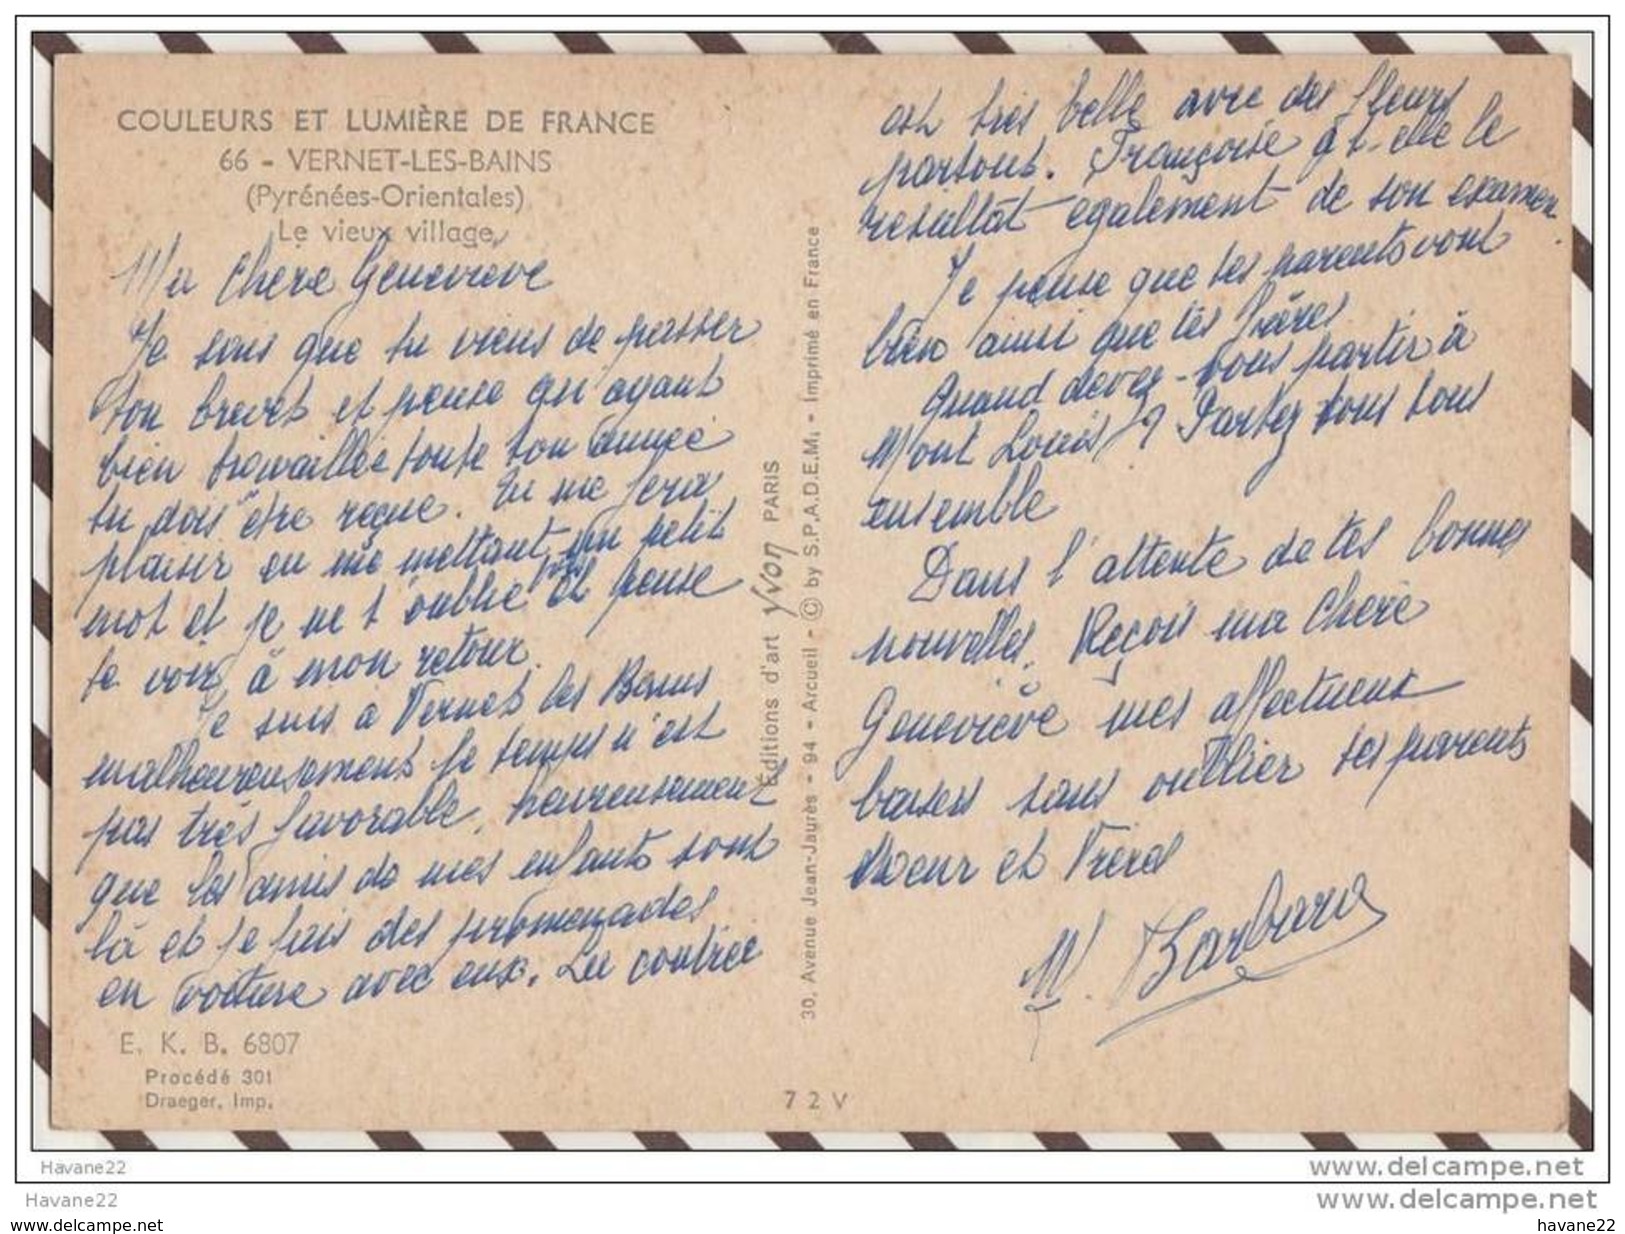 COULEURS ET LUMIÈRE DE FRANCE
66 - VERNET-LES-BAINS
(Pyrénées-Orientales)
Le vieux village
Ma Chère Geneviève
Je sais que tu viens de passer
ton brevet et pense qu'ayant
bien travaillée toute ton année
tu dois être reçue. Tu me fera
plaisir en me mettant un petit
mot et je ne t'oublie pas et pense
te voir à mon retour.
Je suis à Vernet les Bains
malheureusement le temps n'est
pas très favorable, heureusement
que les amis de mes enfants sont
là et je fais des promenades
en voiture avec eux. La contrée
E. K. B. 6807
Procédé 301
Draeger, Imp.
Éditions d'art Yvon PARIS
30, Avenue Jean-Jaurès - 94 - Arcueil - © by S.P.A.D.E.M. - Imprimé en France
7 2 V
est très belle avec des fleurs
partout. Françoise a t-elle le
resultât egalement de son examen.
Je pense que tes parents vont
bien ainsi que tes frères
Quand devez-vous partir à
Mont Louis ? Partez vous tous
ensemble
Dans l'attente de tes bonnes
nouvelles. Reçois ma Chère
Geneviève mes affectueux
baisers sans oublier tes parents
soeur et Frères
M. Barbera
Havane22
www.delcampe.net
Havane22
www.delcampe.net
www.delcampe.net
havane22